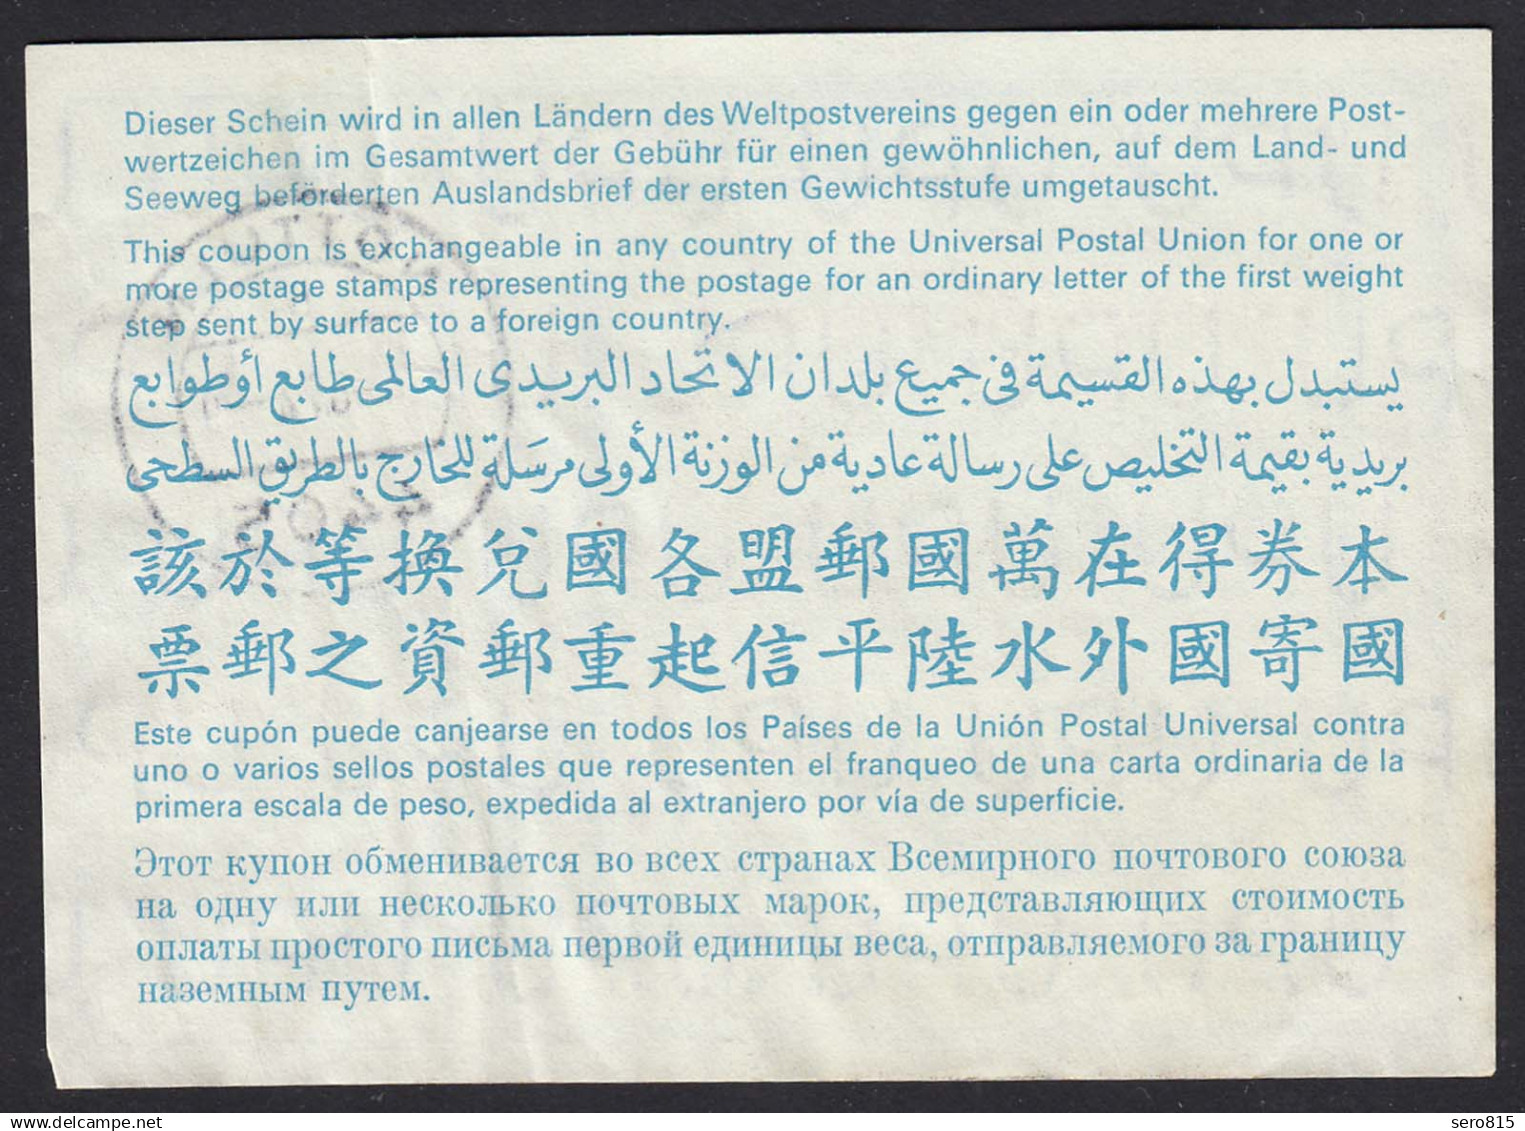 Dieser Schein wird in allen Ländern des Weltpostvereins gegen ein oder mehrere Post-
wertzeichen im Gesamtwert der Gebühr für einen gewöhnlichen, auf dem Land- und
Seeweg beförderten Auslandsbrief der ersten Gewichtsstufe umgetauscht.
This coupon is exchangeable in any country of the Universal Postal Union for one or
more postage stamps representing the postage for an ordinary letter of the first weight
step sent by surface to a foreign country.
يستبدل بهذه القسيمة فى جميع بلدان الاتحاد البريدى العالمى طابع أو طوابع
بريدية بقيمة التخليص على رسالة عادية من الوزنة الأولى مرسَلة للخارج بالطريق السطحى
本券得在萬國郵盟各國兌換等於該
國寄國外水陸平信起重郵資之郵票
Este cupón puede canjearse en todos los Países de la Unión Postal Universal contra
uno o varios sellos postales que representen el franqueo de una carta ordinaria de la
primera escala de peso, expedida al extranjero por vía de superficie.
Этот купон обменивается во всех странах Всемирного почтового союза
на одну или несколько почтовых марок, представляющих стоимость
оплаты простого письма первой единицы веса, отправляемого за границу
наземным путем.
4405
www.delcampe.net
sero815